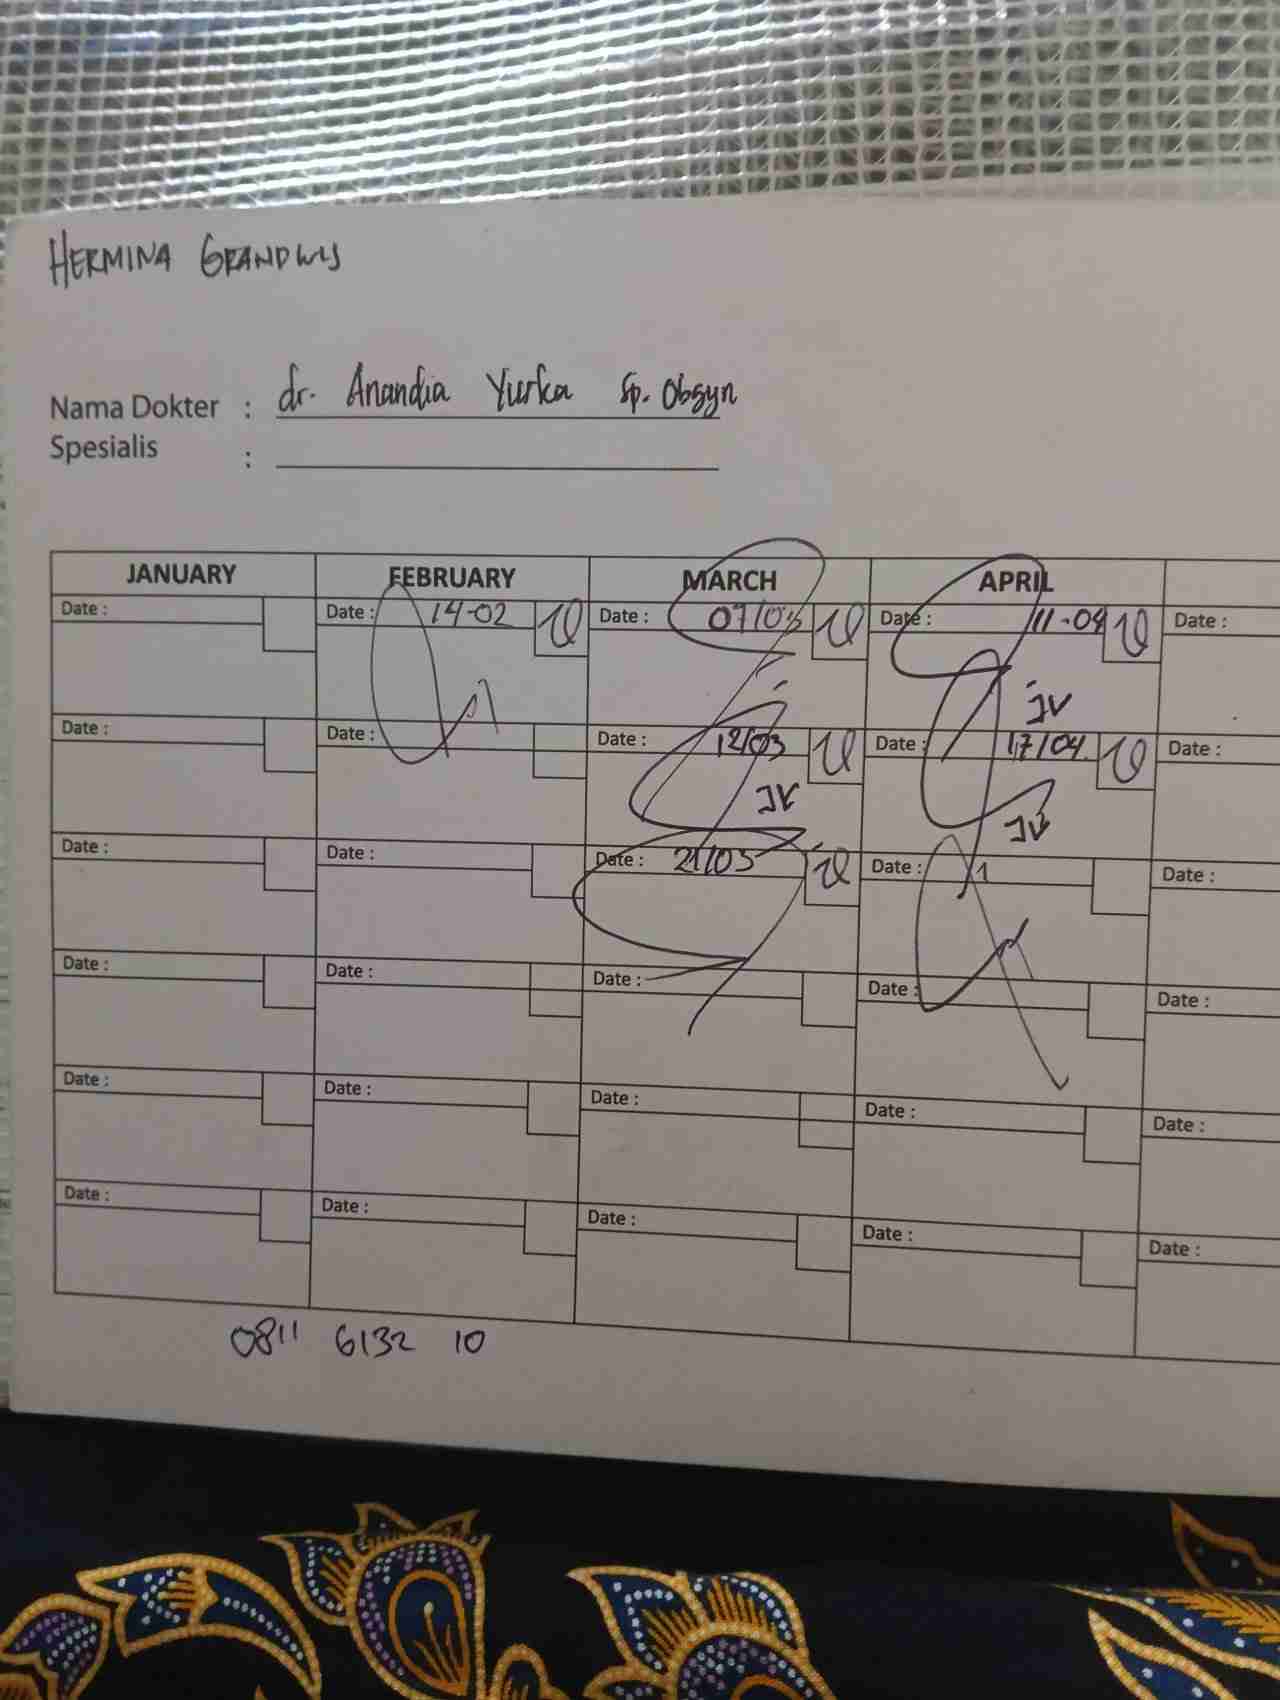 HERMINA GRANDWIS
Nama Dokter : dr. Anandia Yurka Sp. Obgyn
Spesialis :
JANUARY FEBRUARY MARCH APRIL
Date : Date : 14-02 Date : 07/03 Date : 11-04 Date :
JV
Date : Date : Date : 12/03 Date : 17/04 Date :
JV JV
Date : Date : Date : 21/03 Date : Date :
Date : Date : Date : Date : Date :
Date : Date : Date : Date : Date :
Date : Date : Date : Date : Date :
0811 6132 10